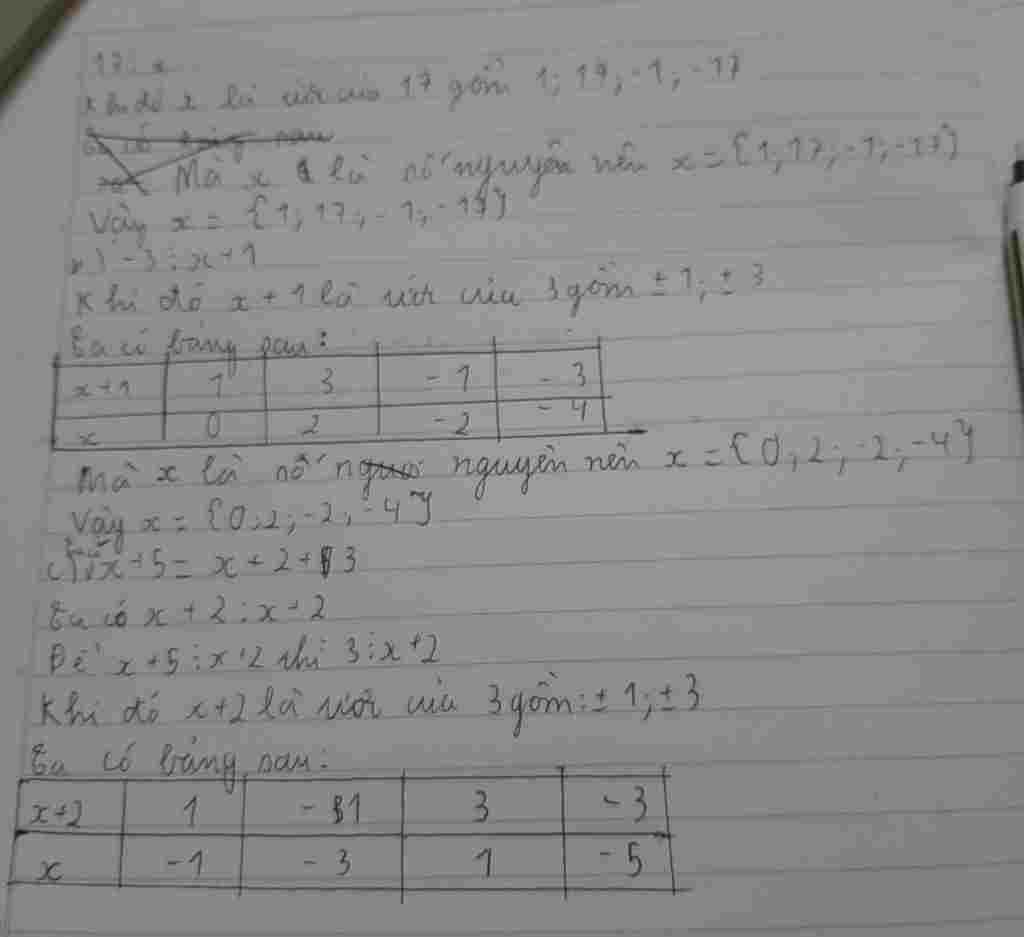 17 ⋮ x
Khi đó x là ước của 17 gồm 1; 17; -1; -17
Mà x là số nguyên nên x = {1; 17; -1; -17}
Vậy x = {1; 17; -1; -17}
b) -3 ⋮ x+1
Khi đó x + 1 là ước của 3 gồm ± 1; ± 3
Ta có bảng sau:
x+1 1 3 -1 -3
x 0 2 -2 -4
Mà x là số nguyên nên x = {0; 2; -2; -4}
Vậy x = {0; 2; -2; -4}
c) x + 5 = x + 2 + 3
Ta có x + 2 ⋮ x + 2
Để x + 5 ⋮ x + 2 thì 3 ⋮ x + 2
Khi đó x+2 là ước của 3 gồm: ± 1; ± 3
Ta có bảng sau:
x+2 1 -1 3 -3
x -1 -3 1 -5